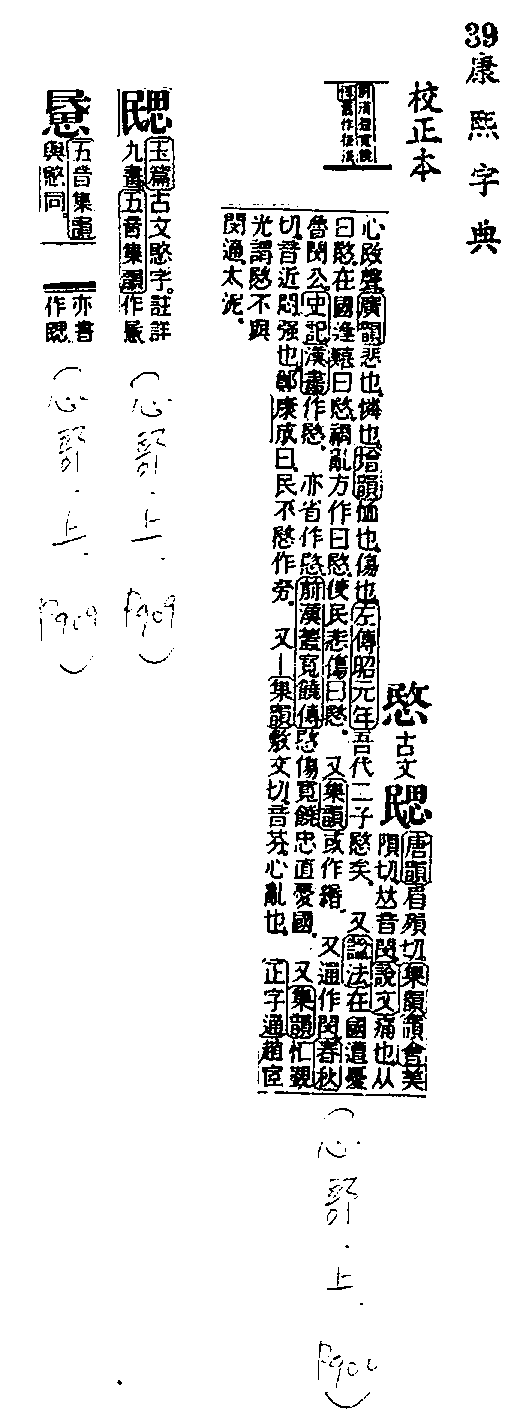 39
康熙字典
校正本
愍
古文
𢟪
唐韻眉殞切集韻韻會美
隕切𠀤音閔說文痛也从
心敃聲廣韻悲也憐也增韻恤也傷也左傳昭元年吾代二子愍矣。又諡法在國遭憂
曰愍在國逢囏曰愍禍亂方作曰愍使民悲傷曰愍。又集韻或作緡。又通作閔春秋
魯閔公史記漢書作愍。亦省作愍前漢蓋寬饒傳愍傷寬饒忠直憂國。又集韻忙覲
切音近悶强也鄭康成曰民不愍作劳。又集韻敷文切音芬心亂也。正字通趙宧
光謂愍不與
閔通太泥。
(心部.上. P906)
玉篇古文愍字。註詳
九畫五音集韻作
(心部.上. P909)
五音集韻
與愍同。
亦書
作
(心部.上. P909)